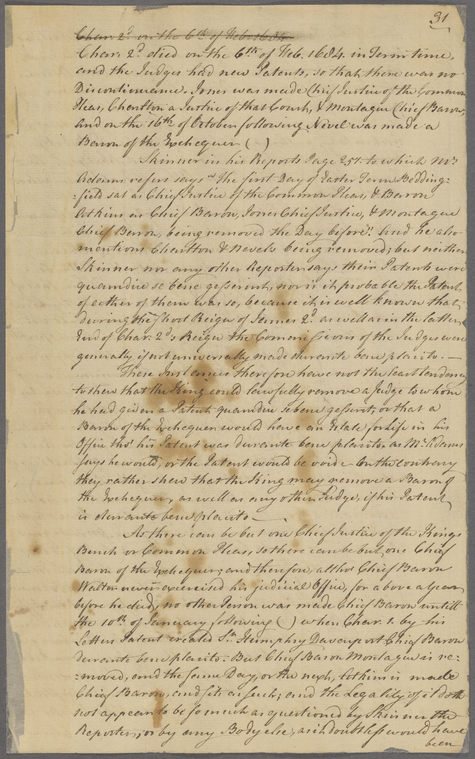 31
Char: 2d. on the 6th of Feb. 1684
Char: 2d. died on the 6th of Feb. 1684. in Term time,
and the Judges had new Patents, so that there was no
Discontinuance. Jones was made Chief Justice of the Common
Pleas, Charlton a Justice of that Court, & Montague Chief Baron,
and on the 16th of October following Nevel was made a
Baron of the Exchequer ( )
Skinner in his Reports Page 251. to which Mr.
Adams refers says "The first Day of Easter Term Bedding-
-field sat as Chief Justice of the Common Pleas, & Baron
Atkins as Chief Baron, Jones Chief Justice, & Montague
Chief Baron, being removed the Day before." And he also
mentions Charlton & Nevels being removed; but neither
Skinner nor any other Reporter says their Patents were
quamdiu se bene gesserint, nor is it probable the Patent
of either of them was so, because it is well known that
during the short Reign of James 2d. as well as in the latter
End of Char. 2d's Reign the Commissions of the Judges were
generally if not universally made durante bene placito. —
These Instances therefore have not the least tendency
to shew that the King could lawfully remove a Judge to whom
he had given a Patent quamdiu se bene gesserit, or that a
Baron of the Exchequer would have an Estate for Life in his
Office tho' his Patent was durante bene placito, as Mr. Adams
says he would, or the Patent would be void. On the contrary
they rather shew that the King may remove a Baron of
the Exchequer, as well as any other Judge, if his Patent
is durante bene placito —
As there can be but one Chief Justice of the Kings
Bench or Common Pleas, so there can be but one Chief
Baron of the Exchequer; and therefore, altho' Chief Baron
Walter never exercised his judicial Office, for above a Year
before he died, no other Person was made Chief Baron untill
the 10th of January following ( ) when Char: 1. by his
Letters Patent created Sr. Humphry Davenport Chief Baron
durante bene placito: But Chief Baron Montague is re-
-moved, and the same Day, or the next, Atkins is made
Chief Baron, and sits as such, and the Legality of it doth
not appear to be so much as questioned by Skinner the
Reporter, or by any Body else, as it doubtless would have
been